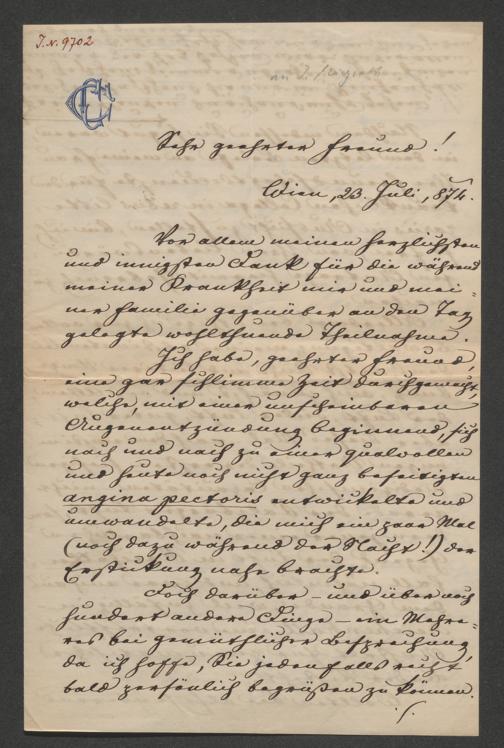 J.N. 9702
CC
an J.
Sehr geehrter Freund!
Wien, 23. Juli, 874.
Vor allem meinen herzlichsten
und innigsten Dank für die während
meiner Krankheit mir und mei-
ner Familie gegenüber an den Tag
gelegte wohlthuende Theilnahme.
Ich habe, geehrter Freund,
eine gar schlimme Zeit durchgemacht,
welche, mit einer unscheinbaren
Augenentzündung beginnend, sich
nach und nach zu einer qualvollen
und heute noch nicht ganz beseitigten
angina pectoris entwickelte und
umwandelte, die mich ein paar Mal
(noch dazu während der Nacht!) der
Erstickung nahe brachte.
Doch darüber – und über noch
hundert andere Dinge – ein Mehre-
res bei gemüthlicher Besprechung,
da ich hoffe, Sie jedenfalls recht
bald persönlich begrüßen zu können.
./.